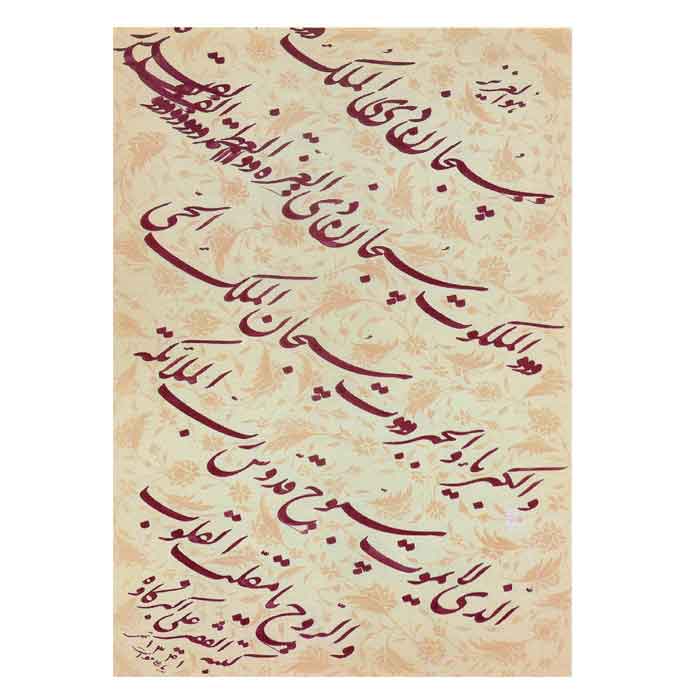 هوالعزیز
سبحان ذی الملک
والملکوت سبحان ذی العزة والعظمة والقدرة
والکبریاء والجبروت سبحان الملک الحی
الذی لا یموت سبوح قدوس رب الملائکة
والروح یا مقلب القلوب
کتبه الفقیر علی اکبر کاوه